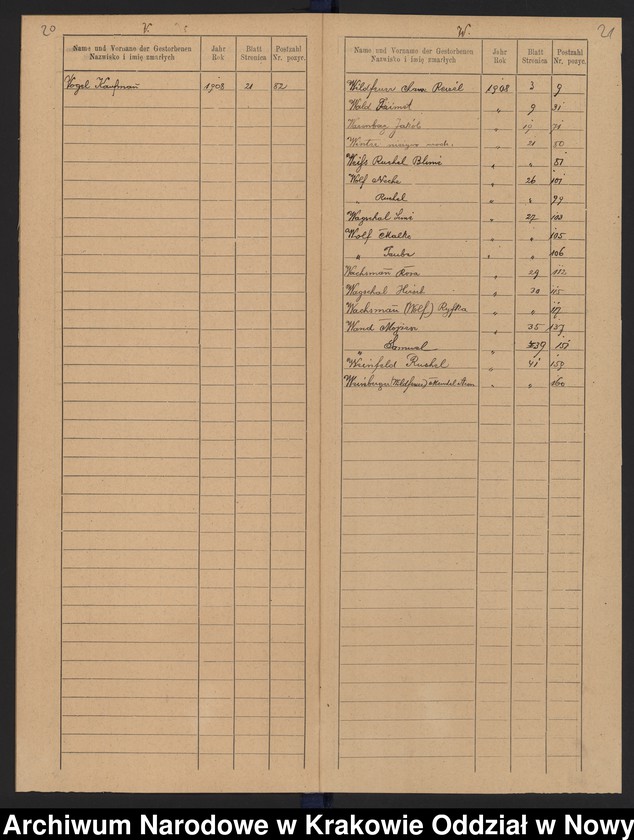 20
V.
Name und Vorname der Gestorbenen
Nazwisko i imię zmarłych
Jahr
Rok
Blatt
Stronica
Postzahl
Nr. pozyc.
Vogel Kaufman 1908 21 52
21
W.
Name und Vorname der Gestorbenen
Nazwisko i imię zmarłych
Jahr
Rok
Blatt
Stronica
Postzahl
Nr. pozyc.
Wildfeuer 1908 3 9
Wald 9 31
Jakób 19 71
21 50
Weiss Ruchel Blime " " 51
Wolf Neche " 26 101
" Ruchel " " 99
Wagschal " 27 103
Wolf Malke " " 105
" Taube " " 106
Wachsman " 29 112
Wagschal Hirsch " 30 115
Wachsman (Wolf) Ryfka " "
Wand Mojżesz " 35 137
" Samuel " 39 151
Weinfeld Ruchel " 41 159
Weinberger (Wildfeuer) Mendel " " 160
Archiwum Narodowe w Krakowie Oddział w Nowy